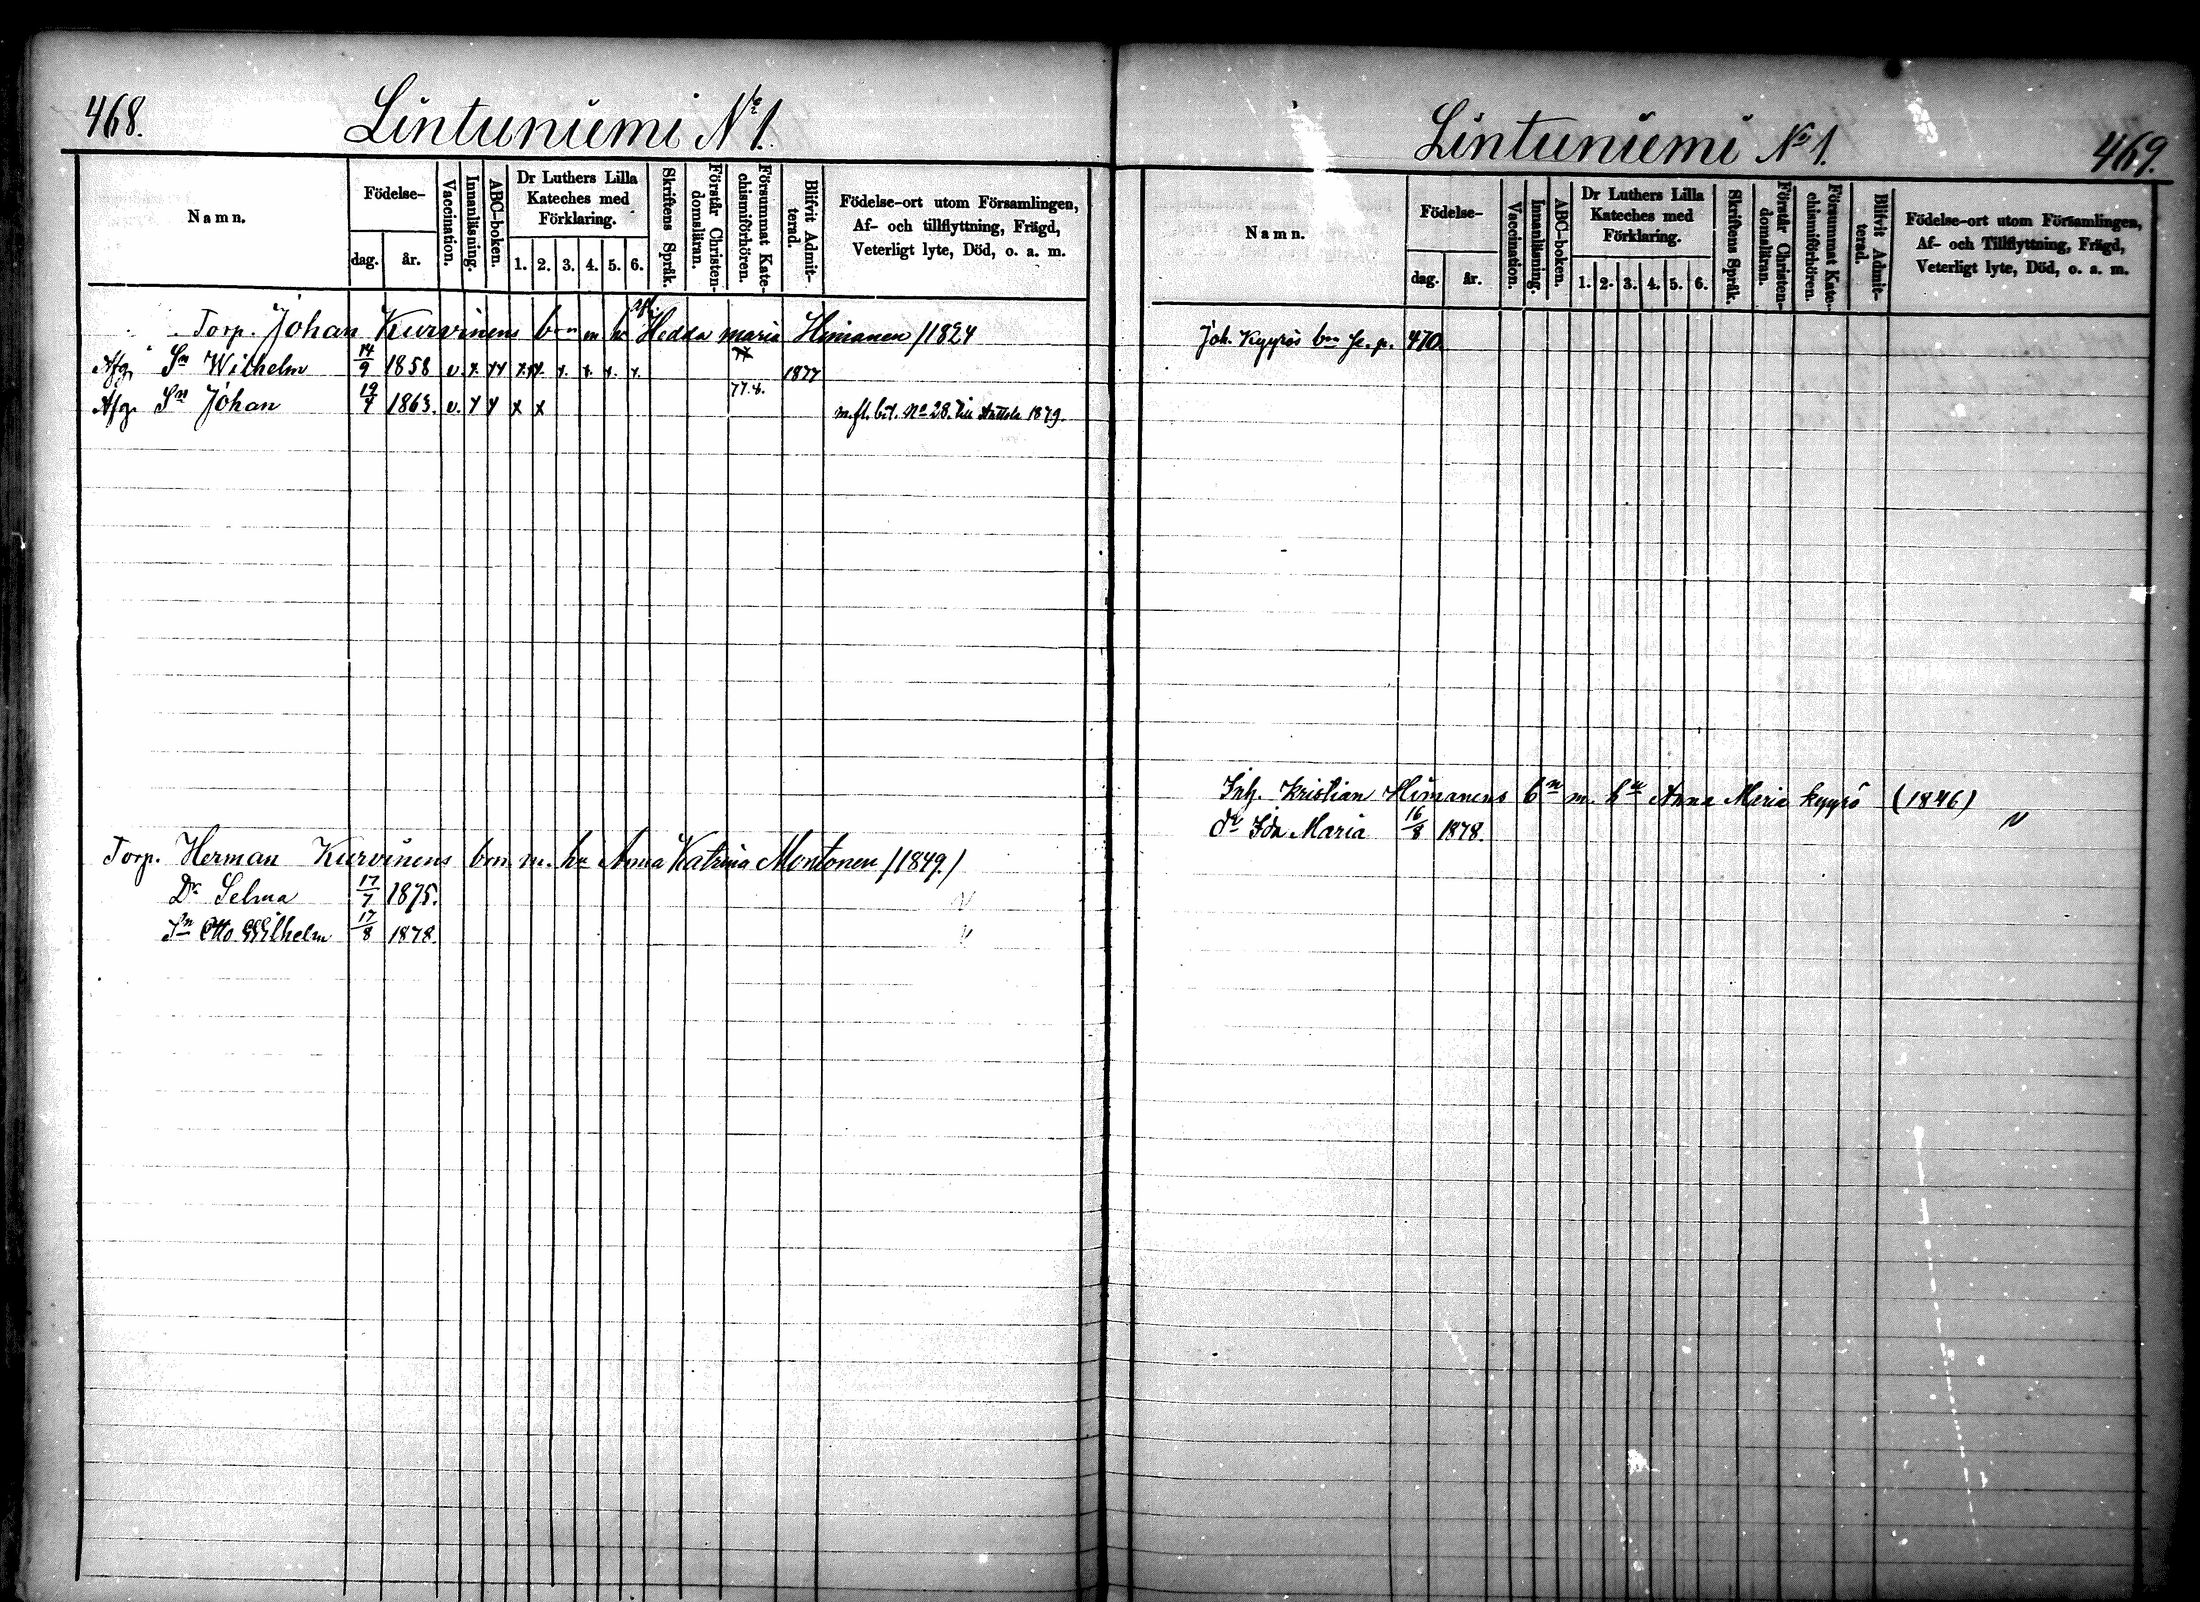 468.
Lintuniemi No 1.
Namn.
Födelse-
dag.
år.
Vaccination.
Innanläsning.
ABC-boken.
Dr Luthers Lilla Kateches med Förklaring.
1. 2. 3. 4. 5. 6.
Skriftens Språk.
Förstår Christendomsläran.
Försummat Katechismiförhören.
Blifvit Admitterad.
Födelse-ort utom Församlingen,
Af- och tillflyttning, Frägd,
Veterligt lyte, Död, o. a. m.
Torp. Johan Kurvinens bn m h Hedda Maria Himanen /1824
Afg. Sn Wilhelm 14/9 1858 v. x. xx x. x. x. x. x. 1877
Afg. Sn Johan 19/7 1863. v. x x x x 77.x. m. fl. bet. No 28. till 1879.
Torp. Herman Kurvinens bn m. hu Anna Katrina Montonen /1849./
Dr Selma 17/7 1875.
Sn Otto Wilhelm 17/8 1878.
469.
Lintuniemi No 1.
Namn.
Födelse-
dag.
år.
Vaccination.
Innanläsning.
ABC-boken.
Dr Luthers Lilla Kateches med Förklaring.
1. 2. 3. 4. 5. 6.
Skriftens Språk.
Förstår Christendomsläran.
Försummat Katechismiförhören.
Blifvit Admitterad.
Födelse-ort utom Församlingen,
Af- och Tillflyttning, Frägd,
Veterligt lyte, Död, o. a. m.
Joh. Kyyrös bn se. p. 470.
Inh. Kristian Himanens bn m. hu Anna Maria Kyyrö (1846)
dr Ida Maria 16/8 1878.